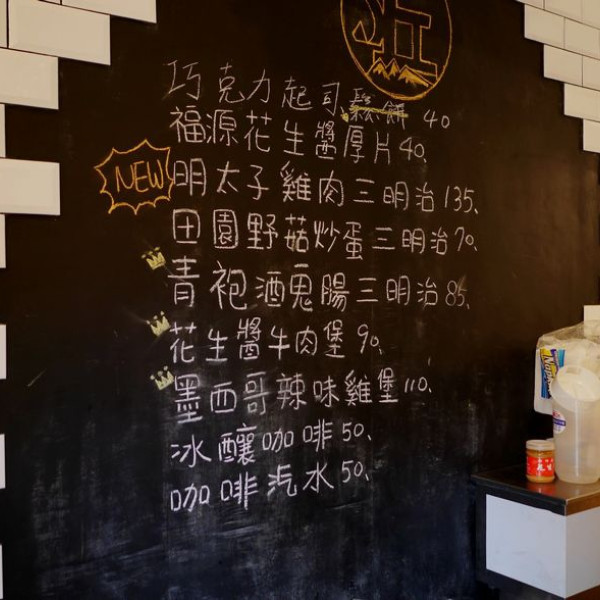 巧克力起司鬆餅 40
福源花生醬厚片 40、
NEW 明太子雞肉三明治 135、
田園野菇炒蛋三明治 70、
青袍酒鬼腸三明治 85、
花生醬牛肉堡 90、
墨西哥辣味雞堡 110、
冰釀咖啡 50、
咖啡汽水 50、